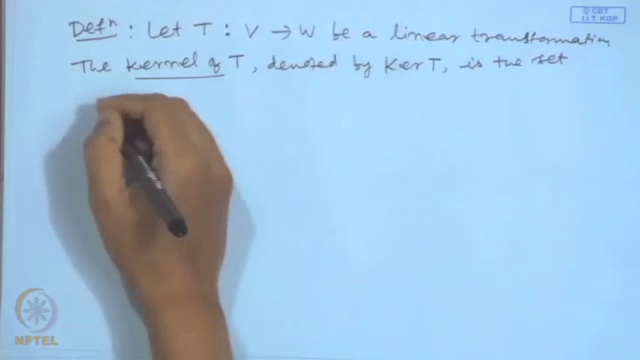 © CET
I.I.T. KGP
Defⁿ : Let T : V → W be a linear transformation
The Kernel of T, denoted by Ker T, is the set
NPTEL